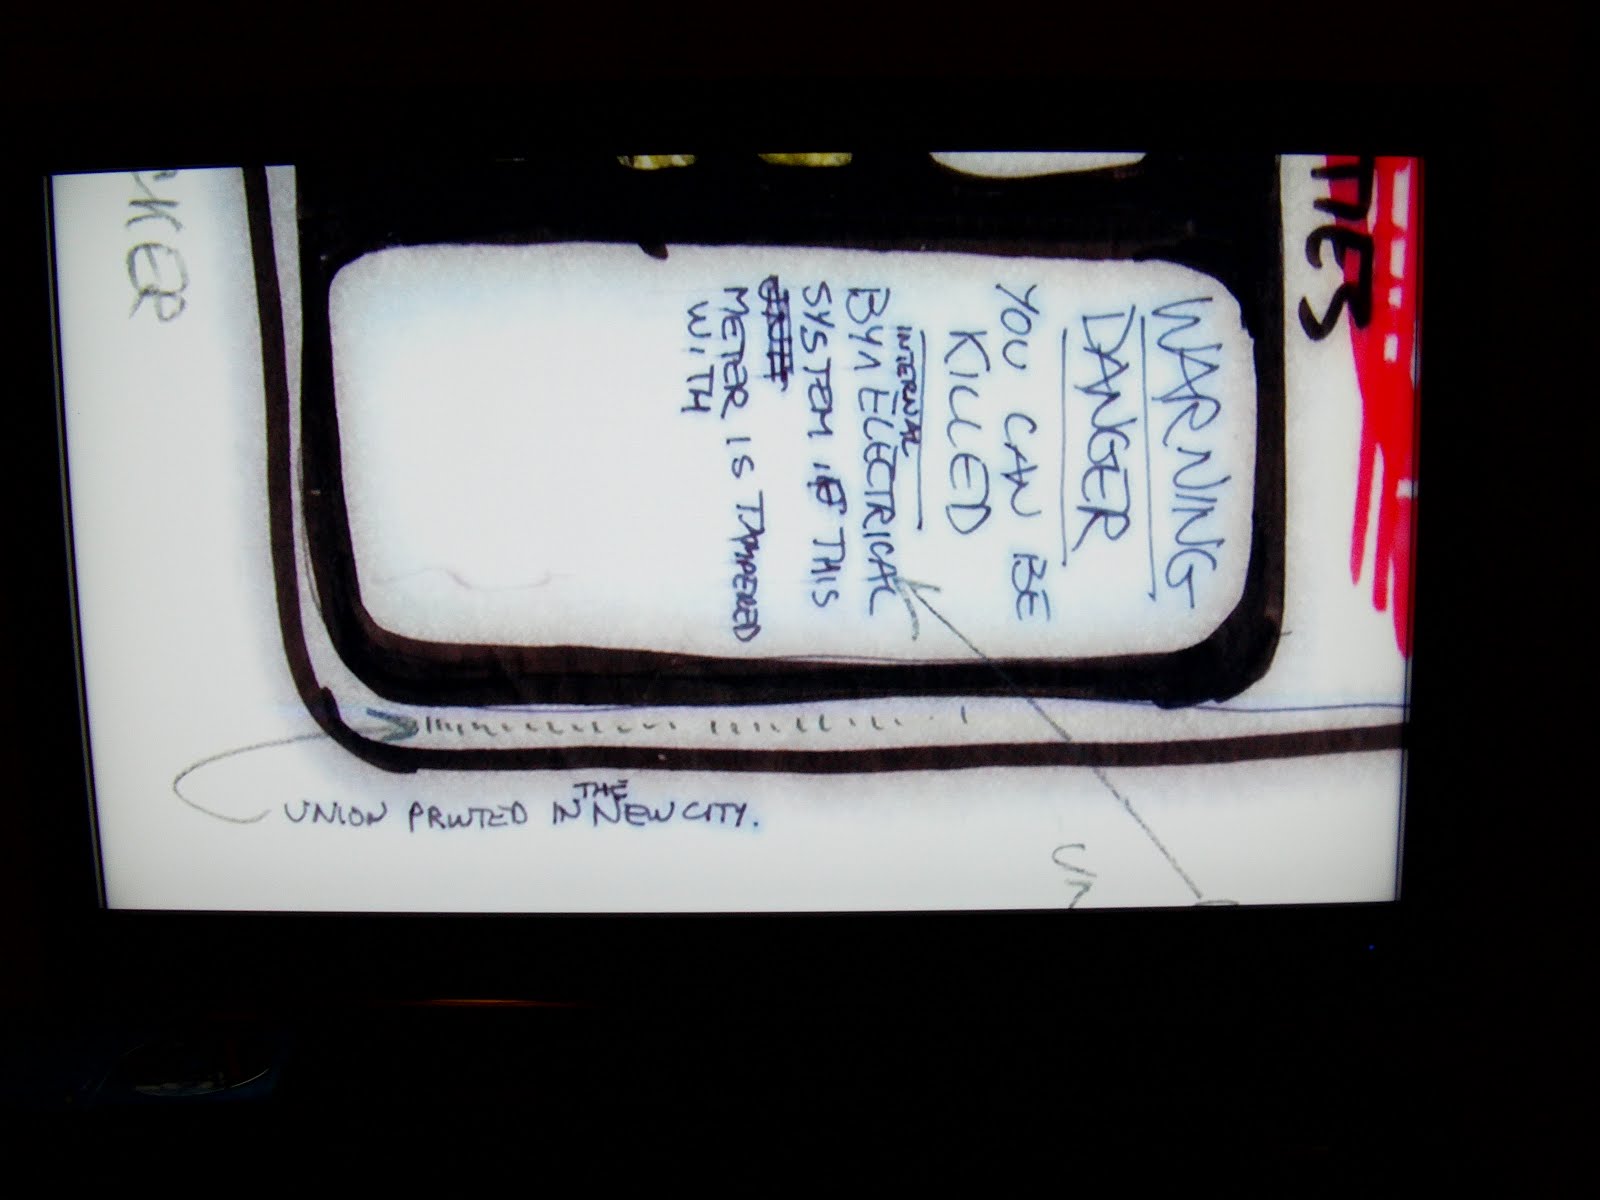 WARNING
DANGER
YOU CAN BE
KILLED
INTERNAL
BY ^ ELECTRICAL
SYSTEM IF THIS
METER IS TAMPERED
WITH
UNION PRINTED IN THE NEW CITY.